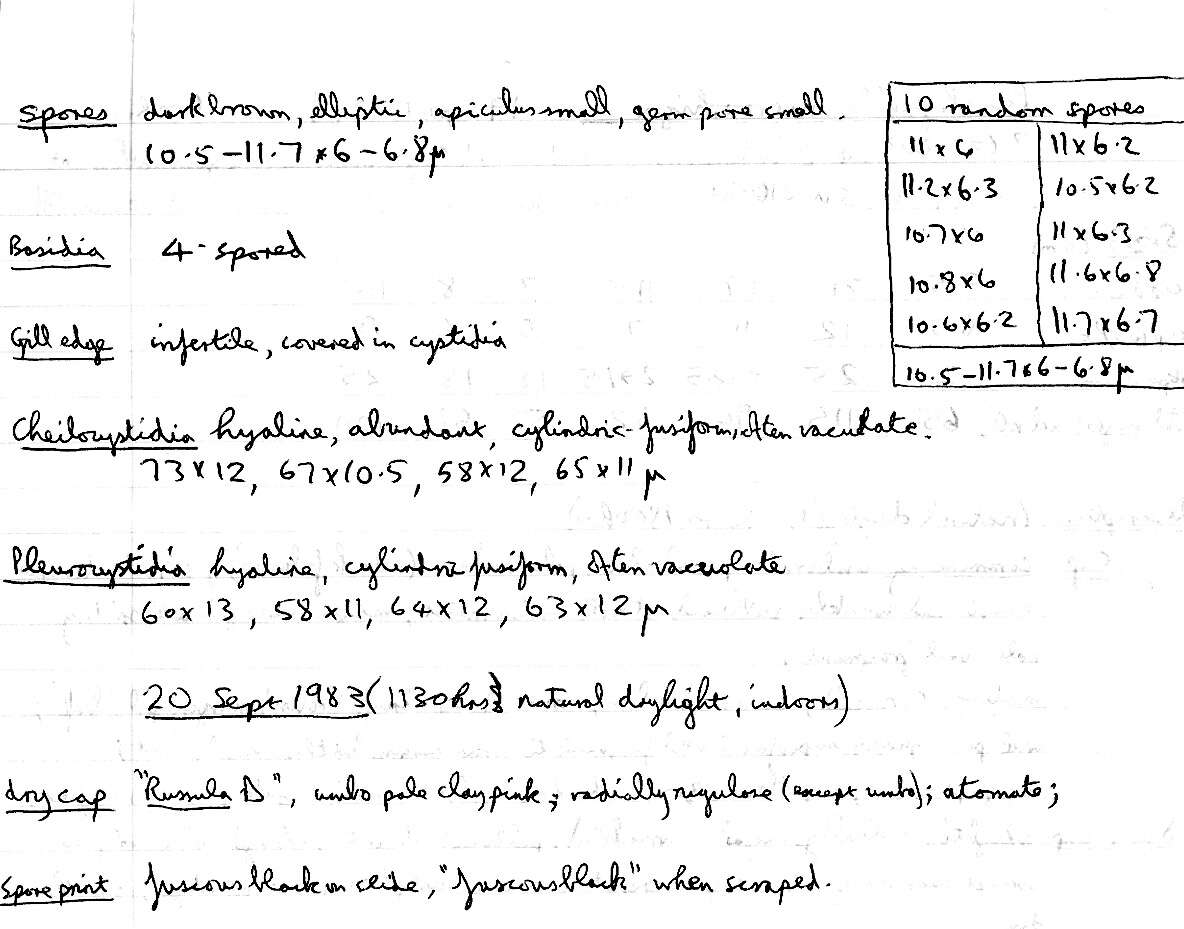 spores dark brown, elliptic, apiculus small, germ pore small.
10.5-11.7 x 6-6.8μ
10 random spores
11 x 6 11 x 6.2
11.2 x 6.3 10.5 x 6.2
10.7 x 6 11 x 6.3
10.8 x 6 11.6 x 6.8
10.6 x 6.2 11.7 x 6.7
10.5-11.7 x 6-6.8μ
Basidia 4-spored
Gill edge infertile, covered in cystidia
Cheilocystidia hyaline, abundant, cylindric-fusiform, often vacuolate.
73 x 12, 67 x 10.5, 58 x 12, 65 x 11 μ
Pleurocystidia hyaline, cylindric fusiform, often vacuolate
60 x 13, 58 x 11, 64 x 12, 63 x 12 μ
20 Sept 1983 (1130hrs; natural daylight, indoors)
dry cap "Russula D", umbo pale clay pink; radially rugulose (except umbo); atomate;
Spore print fuscous black on slide, "fuscous black" when scraped.